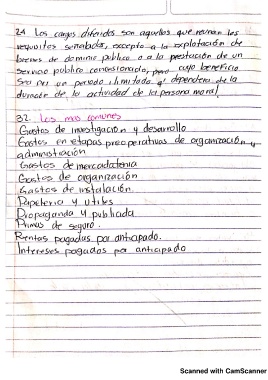 24 Los cargos diferidos son aquellos que reunan los
requisitos señalados, excepto a la explotación de
bienes de dominio publico o a la prestación de un
servicio publico concesionado, pero cuyo beneficio
sea por un periodo ilimitado q' dependera de la
duración de la actividad de la persona moral.
32. Los mas comunes
Gastos de investigación y desarrollo
Gastos en etapas preoperativas de organización y
administración
Gastos de mercadotecnia
Gastos de organización
Gastos de instalación.
Papeleria y utiles
Propaganda y publicidad
Primas de seguro.
Rentas pagadas por anticipado.
Intereses pagados por anticipado
Scanned with CamScanner